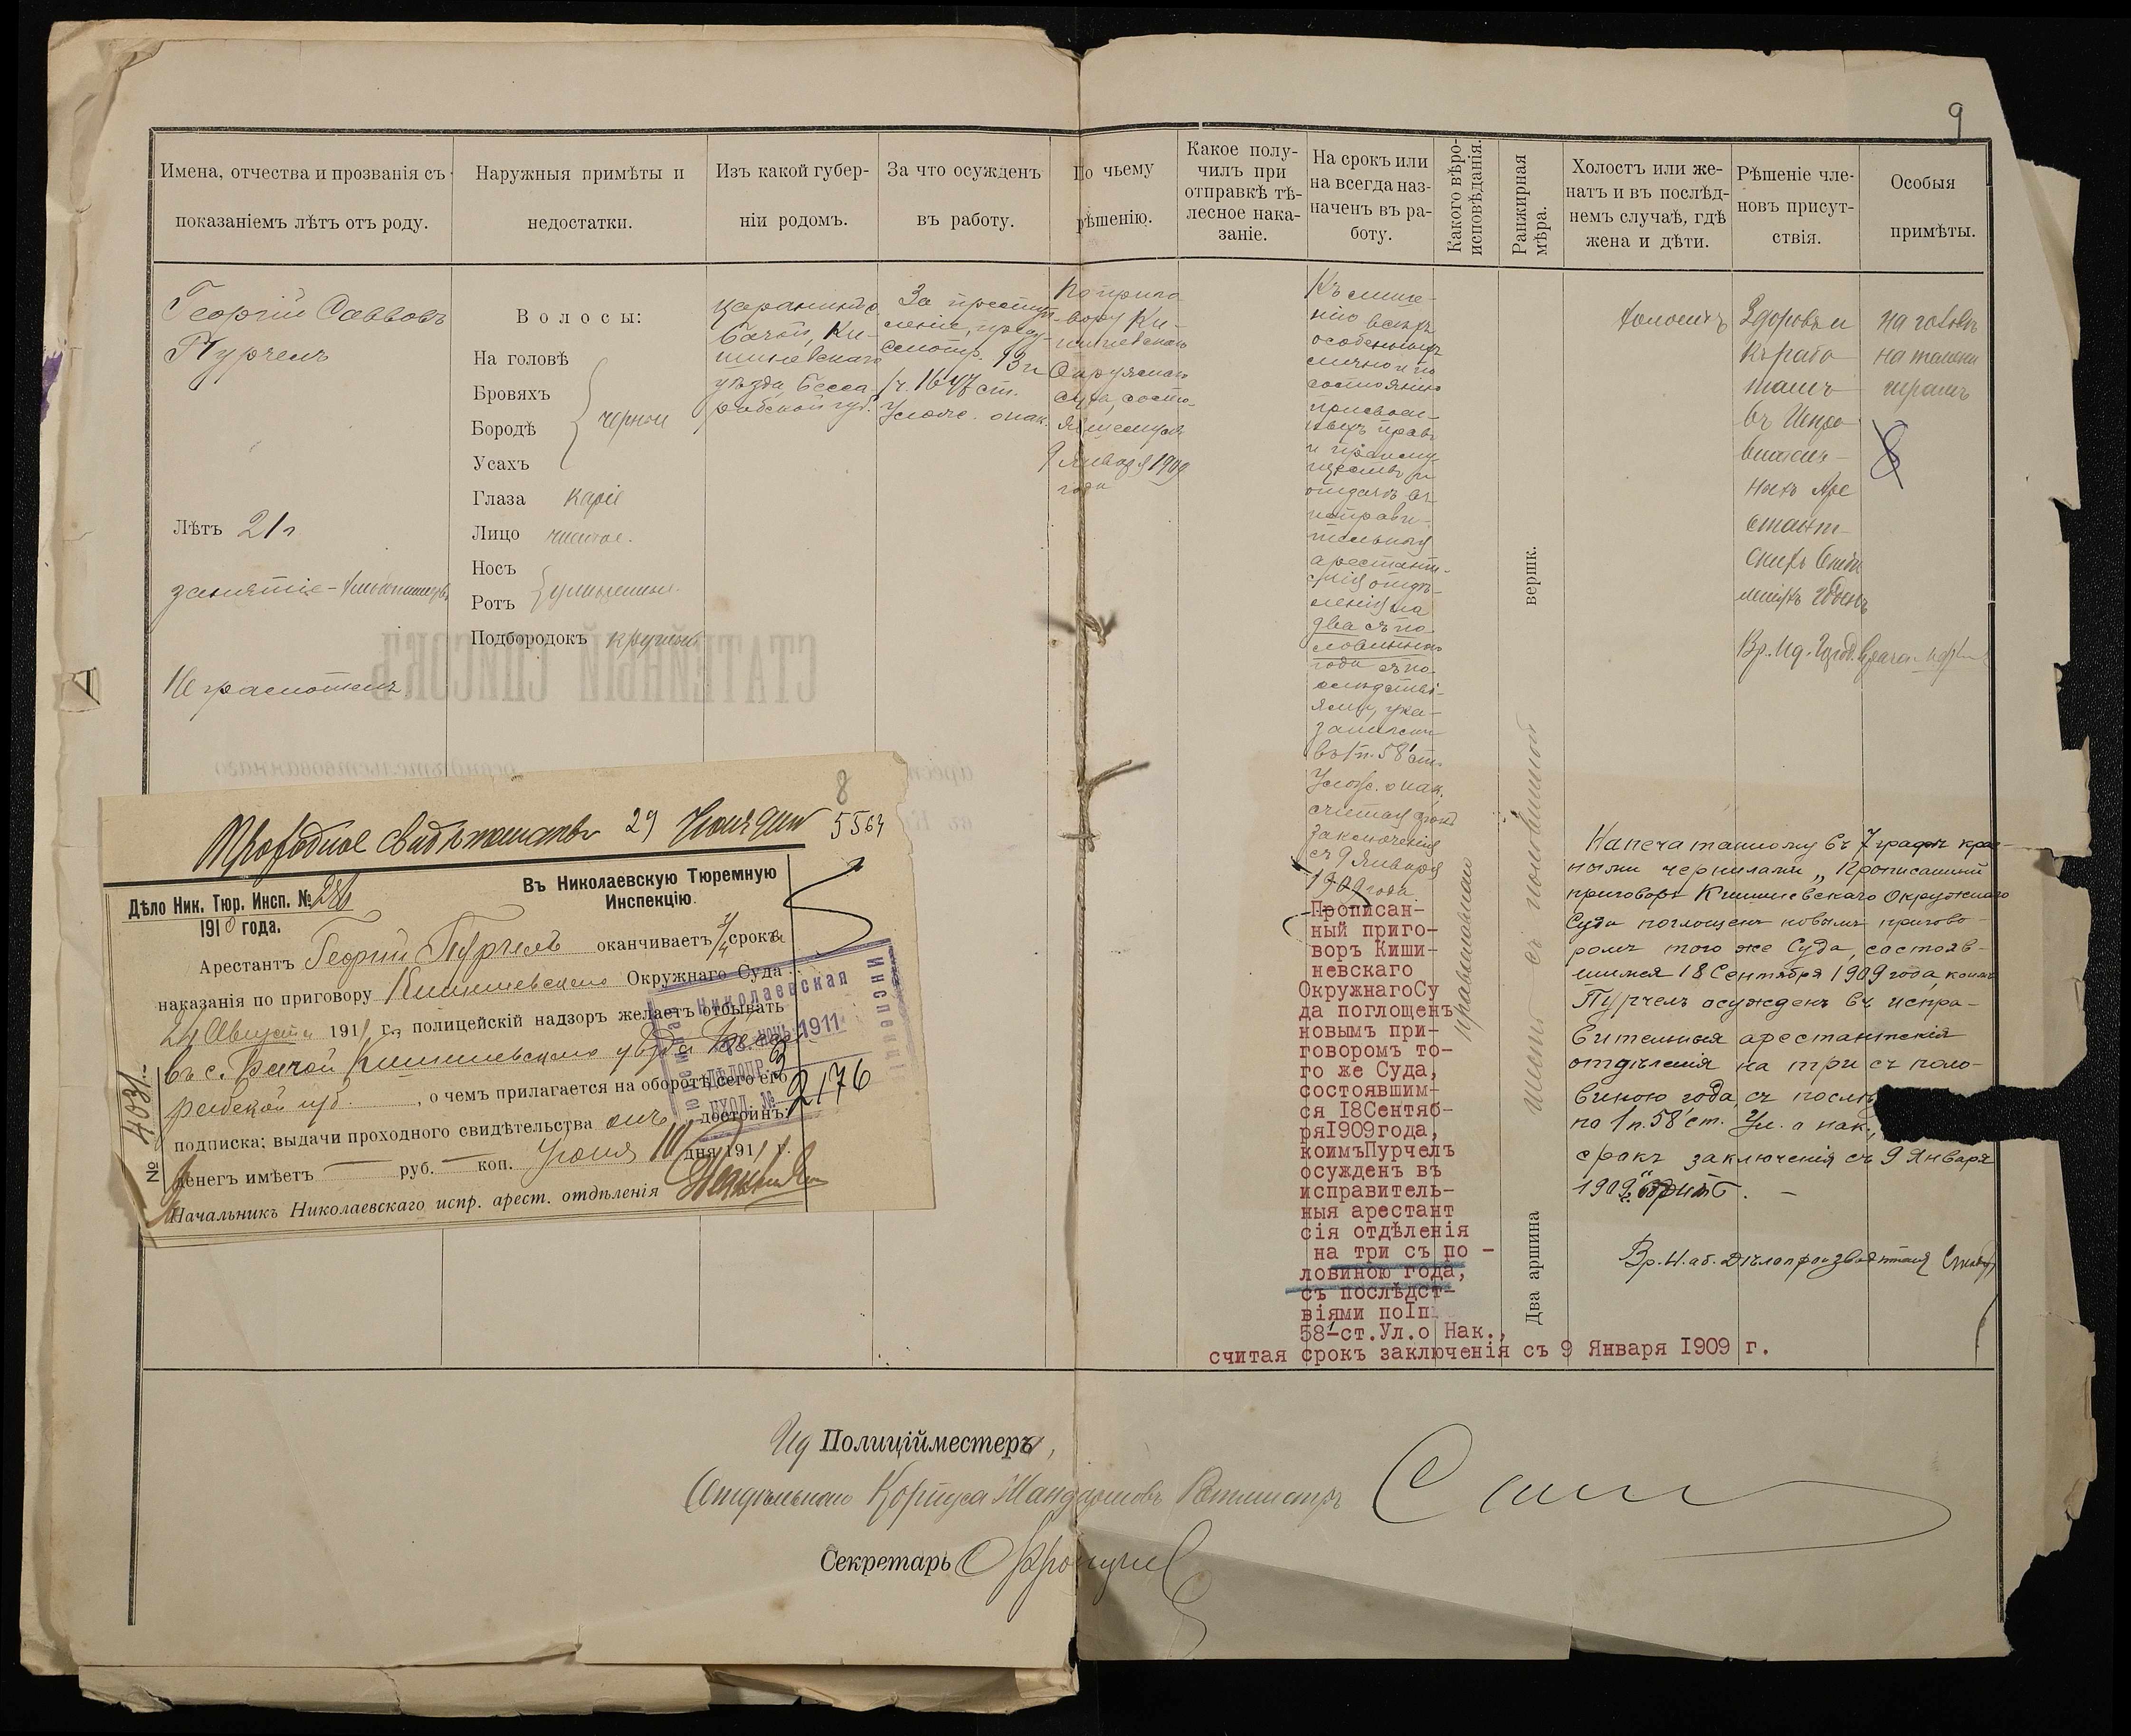 9
Имена, отчества и прозванія съ
показаніемъ лѣтъ отъ роду.
Наружныя примѣты и
недостатки.
Изъ какой губер-
ніи родомъ.
За что осужденъ
въ работу.
По чьему
рѣшенію.
Какое полу-
чилъ при
отправкѣ тѣ-
лесное нака-
заніе.
На срокъ или
на всегда наз-
наченъ въ ра-
боту.
Какого вѣро-
исповѣданія.
Ранжирная
мѣра.
Холостъ или же-
натъ и въ послѣд-
немъ случаѣ, гдѣ
жена и дѣти.
Рѣшеніе чле-
новъ присут-
ствія.
Особыя
примѣты.
Георгій Саввовъ
Пурчелъ
Лѣтъ 21 г
занятіе-
Неграмотенъ
Волосы:
На головѣ
Бровяхъ
Бородѣ
Усахъ
черные
Глаза каріе
Лицо чистое.
Носъ
Ротъ
умѣренные
Подбородокъ круглый
царанинъ с.
Бачой, Ки-
шиневскаго
уѣзда Бесса-
рабской губ.
За преступ-
леніе, преду-
смотр. 13 и
1 ч. 1647 ст.
Улож. о нак.
По приго-
вору Ки-
шиневскаго
Окружнаго
суда, состо-
явшемуся
9 Января 1909
года
Къ лише-
нію всѣхъ
особенныхъ
лично и по
состоянію
присвоен-
ныхъ правъ
и преиму-
ществъ и
отдачѣ въ
исправи-
тельныя
арестант-
скія отдѣ-
ленія на
два съ по-
ловиною
года съ по-
слѣдстві-
ями, ука-
занными
въ 1 п. 58¹ ст.
Улож. о нак.,
считая срокъ
заключенія
съ 9 Января
1909 года
Прописан-
ный приго-
воръ Киши-
невскаго
ОкружнагоСу
да поглощенъ
новымъ при-
говоромъ то-
го же Суда,
состоявшим-
ся 18Сентяб-
ря1909года,
коимъПурчелъ
осужденъ въ
исправитель-
ныя арестант
сія отдѣленія
на три съ по -
ловиною года,
съ послѣдст-
віями по1п
58¹-ст.Ул.о Нак.,
считая срокъ заключенія съ 9 Января 1909 г.
православнаго
Два аршина шесть съ половиной вершк.
холостъ
Здоровъ и
къ рабо
тамъ
въ Испра
витель-
ныхъ Аре
стант-
скихъ Отдѣ
леніяхъ годенъ
на головѣ
на темени
шрамъ
8
Напечатанному въ 7 графѣ крас-
ными чернилами „Прописанный
приговоръ Кишиневскаго Окружнаго
Суда поглощенъ новымъ пригово-
ромъ того же Суда, состояв-
шимся 18 Сентября 1909 года, коимъ
Пурчелъ осужденъ въ испра-
вительныя арестантскія
отдѣленія на три съ поло-
виною года, съ послѣд
по 1 п. 58¹ ст. Ул. о нак.,
срокъ заключенія съ 9 Января
1909 г." вѣрить. -
Вр. И. об. Дѣлопроизводителя
8
Проходное свидѣтельство 29 Іюня дня 5564
Дѣло Ник. Тюр. Инсп. № 286
1910 года.
Въ Николаевскую Тюремную
Инспекцію.
Арестантъ Георгій Пурчелъ оканчиваетъ 3/4 срока
наказанія по приговору Кишиневскаго Окружнаго Суда
24 Августа 1911 г., полицейскій надзоръ желаетъ отбывать
въ с. Бачой Кишиневскаго уѣзда Бесса-
рабской губ. , о чемъ прилагается на оборотѣ сего его
подписка; выдачи проходного свидѣтельства онъ достоинъ.
денегъ имѣетъ — руб. — коп. Іюня 10 дня 1911 г.
Начальникъ Николаевскаго испр. арест. отдѣленія
№ 4031
Николаевская
Тюремная
Инспекція
1911
ВХОД. № 2176
СТАТЕЙНЫЙ СПИСОКЪ
Ид Полиційместера,
Отдѣльнаго Корпуса Жандармовъ Ротмистръ
Секретарь